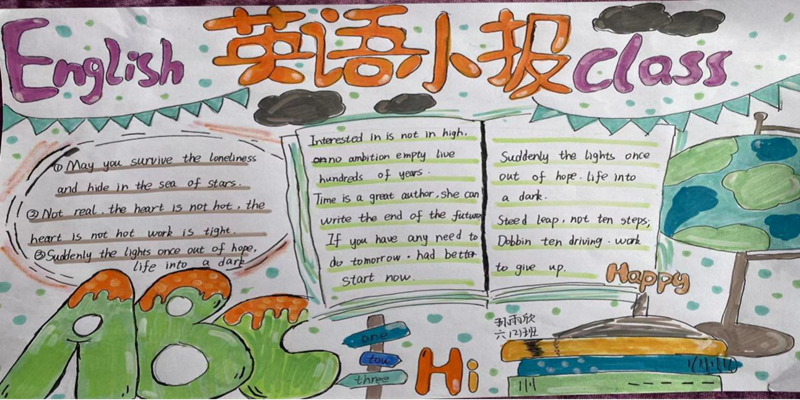 English 英语小报 Class
① May you survive the loneliness
and hide in the sea of stars.
② Not real. the heart is not hot, the
heart is not hot work is tight.
③ Suddenly the lights once out of hope,
life into a dark
Interested in is not in high.
on no ambition empty live
hundreds of years.
Time is a great author, she can
write the end of the future
If you have any need to
do tomorrow. had better
start now.
Suddenly the lights once
out of hope. life into
a dark.
Steed leap, not ten steps;
Dobbin ten driving. work
to give up.
Happy
ABC
one
tou
three
Hi
孙雨欣
六(2)班